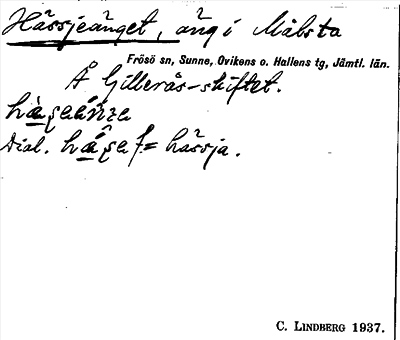 Hässjeänget, äng i Målsta
Frösö sn, Sunne, Ovikens o. Hallens tg, Jämtl. län.
Å Gillerås-skiftet.
Dial. f = hässja.
C. LINDBERG 1937.